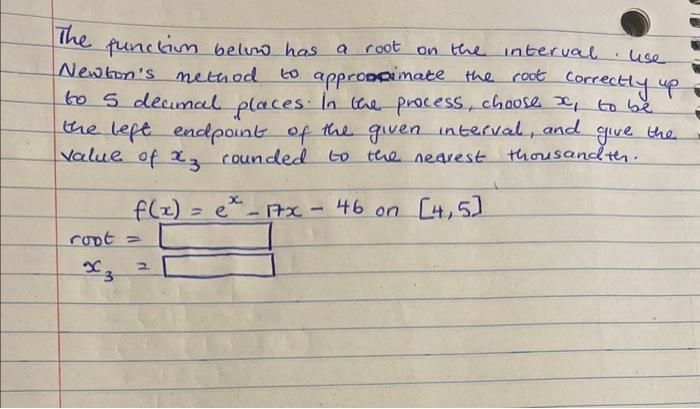 The function below has a root on the interval. Use
Newton's method to approximate the root correctly up
to 5 decimal places. In the process, choose x₁ to be
the left endpoint of the given interval, and give the
value of x₃ rounded to the nearest thousandth.
f(x) = eˣ - 17x - 46 on [4,5]
root =
x₃ =